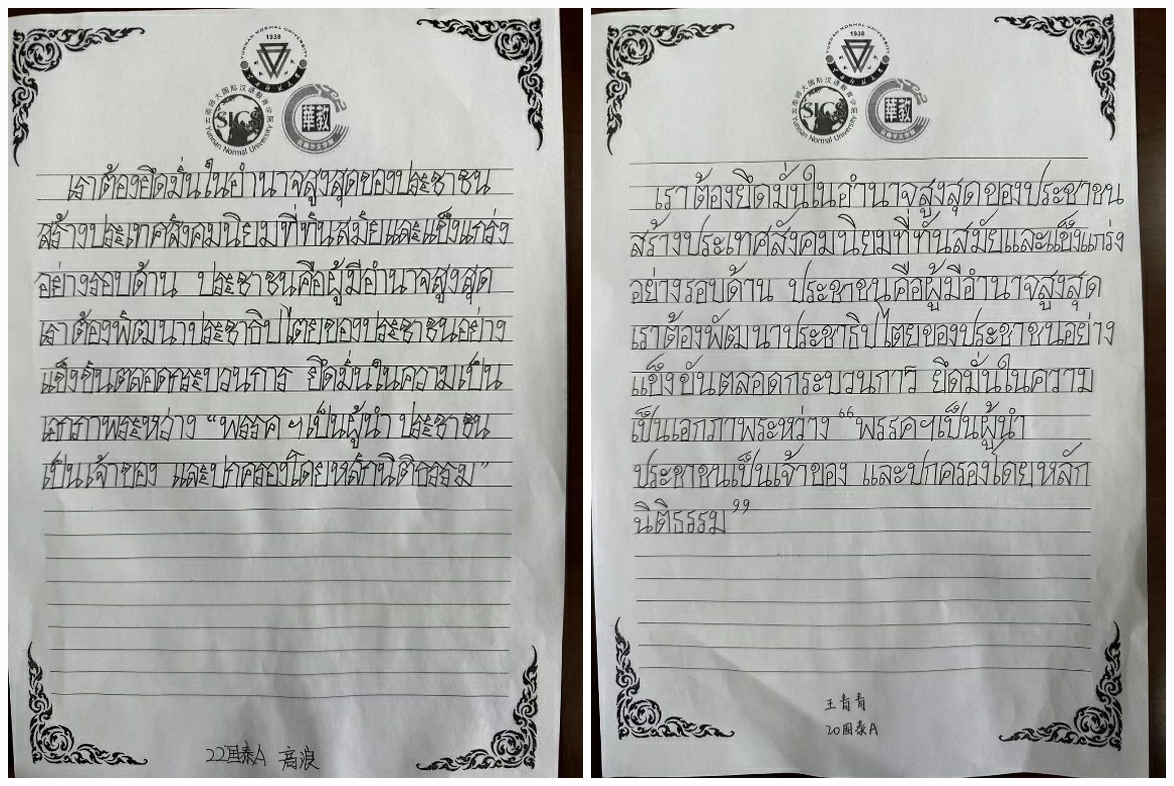 YUNNAN NORMAL UNIVERSITY
1938
云南师大国际汉语教育学院
SICS
Yunnan Normal University
華教
เราต้องยึดมั่นในอำนาจสูงสุดของประชาชน
สร้างประเทศสังคมนิยมที่ทันสมัยและแข็งแกร่ง
อย่างรอบด้าน ประชาชนคือผู้มีอำนาจสูงสุด
เราต้องพัฒนาประชาธิปไตยของประชาชนอย่าง
แข็งขันตลอดกระบวนการ ยึดมั่นในความเป็น
เอกภาพระหว่าง “พรรคฯเป็นผู้นำ ประชาชน
เป็นเจ้าของ และปกครองโดยหลักนิติธรรม”
22国泰A 高浪
YUNNAN NORMAL UNIVERSITY
1938
云南师大国际汉语教育学院
SICS
Yunnan Normal University
華教
เราต้องยึดมั่นในอำนาจสูงสุดของประชาชน
สร้างประเทศสังคมนิยมที่ทันสมัยและแข็งแกร่ง
อย่างรอบด้าน ประชาชนคือผู้มีอำนาจสูงสุด
เราต้องพัฒนาประชาธิปไตยของประชาชนอย่าง
แข็งขันตลอดกระบวนการ ยึดมั่นในความ
เป็นเอกภาพระหว่าง “พรรคฯเป็นผู้นำ
ประชาชนเป็นเจ้าของ และปกครองโดยหลัก
นิติธรรม”
王青青
20国泰A